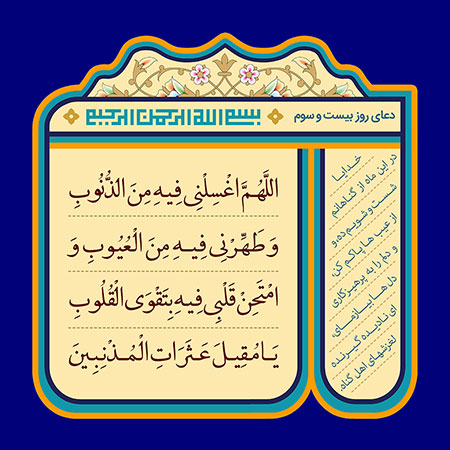 دعای روز بیست و سوم
بسم الله الرحمن الرحیم
اللَّهُمَّ اغْسِلْنِي فِيهِ مِنَ الذُّنُوبِ
وَ طَهِّرْنِي فِيهِ مِنَ الْعُيُوبِ وَ
امْتَحِنْ قَلْبِي فِيهِ بِتَقْوَى الْقُلُوبِ
يَا مُقِيلَ عَثَرَاتِ الْمُذْنِبِينَ
خدایا
در این ماه از گناهانم
شست و شویم ده و
از عیب ها پاکم کن،
و دلم را به پرهیزکاری
دل ها بیازمای،
ای نادیده گیرنده
لغزشهای اهل گناه.